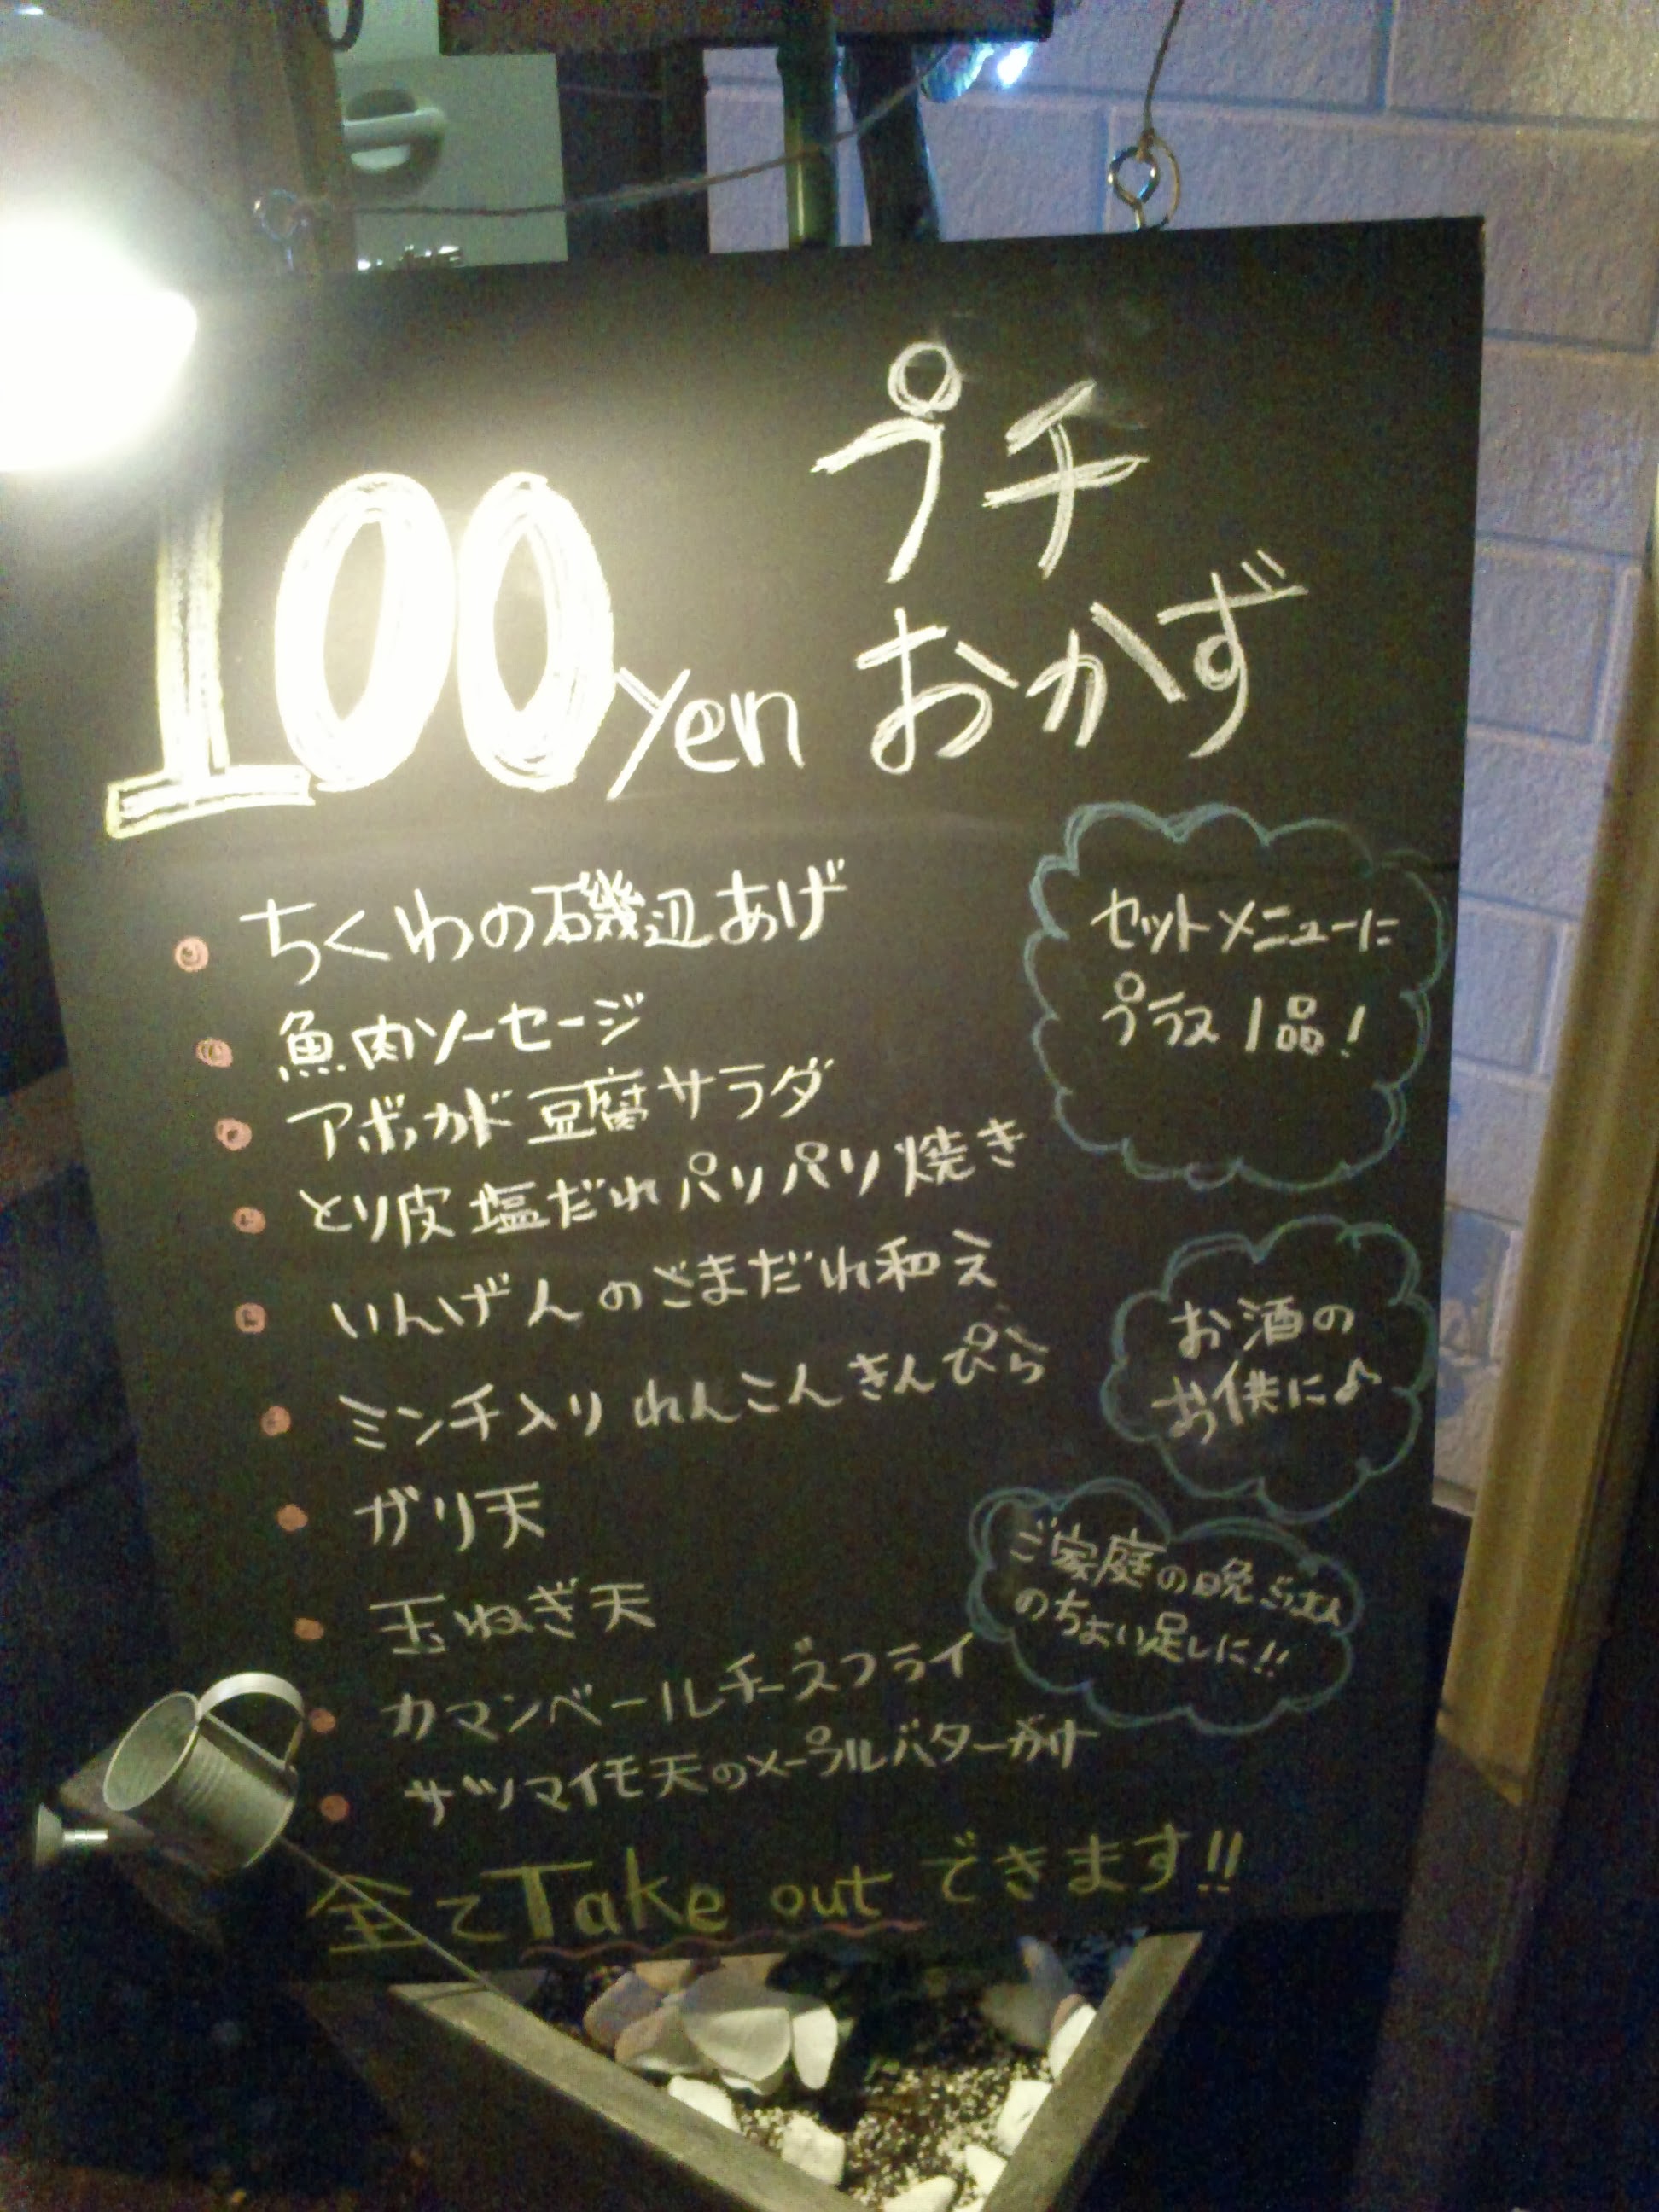 プチ
100yen おかず
ちくわの磯辺あげ
魚肉ソーセージ
アボカド豆腐サラダ
とり皮塩だれパリパリ焼き
いんげんのごまだれ和え
ミンチ入りれんこんきんぴら
ガリ天
玉ねぎ天
カマンベールチーズフライ
サツマイモ天のメープルバターがけ
セットメニューに
プラス1品!
お酒の
お供に♪
ご家庭の晩ごはん
のちょい足しに!!
全てTake out できます!!